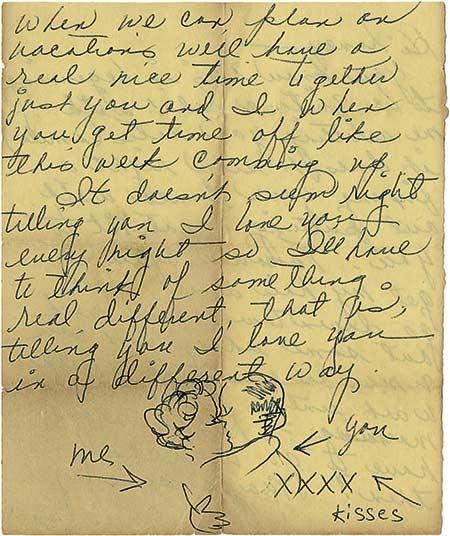 When we can plan on
vacations we'll have a
real nice time together
just you and I when
you get time off like
this week comming up
It doesn't seem right
telling you I love you
every night so I'll have
to think of something
real different, that is,
telling you I love you
in a different way.
me
you
XXXX
kisses